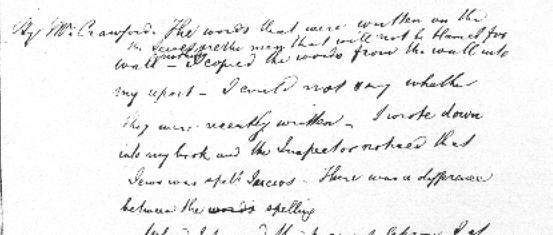 By Mr. Crawford. The words that were written on the
the Juwes are the men that will not be blamed for
nothing
wall — I copied the words from the wall into
my report — I could not say whether
they were recently written — I wrote down
into my book and the Inspector noticed that
Jews was spelt Juwes — There was a difference
between the words spelling